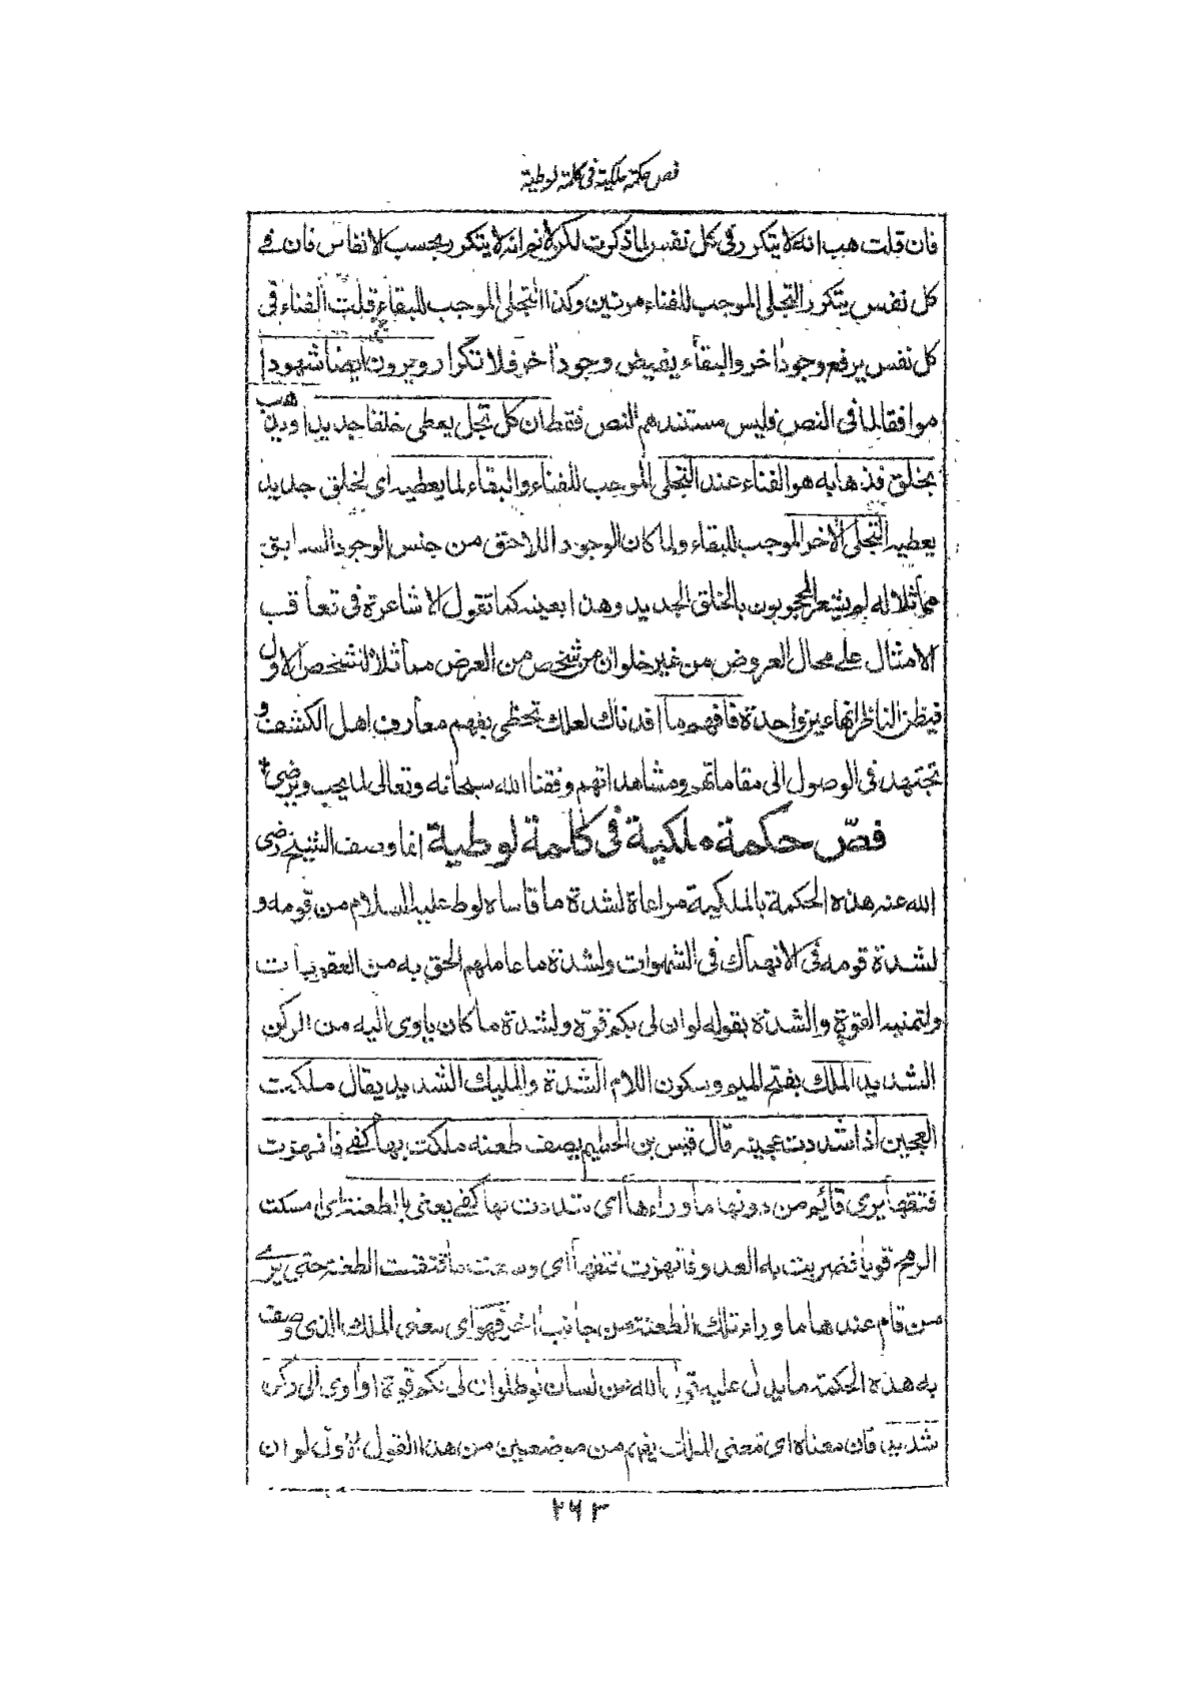 فص حكمة ملكية في كلمة لوطية
فان قلت هب انه لا يتكرر في كل نفس لما ذكرت لكن لا نم انه لا يتكرر بحسب الانفاس فان في
كل نفس يتكرر التجلي الموجب للفناء مرتين وكذا التجلي الموجب للبقاء قلت الفناء في
كل نفس يرفع وجودا اخر والبقاء يفيض وجودا اخر فلا تكرار ويرون ايضا شهودا
موافقا لما في النص فليس مستندهم النص فقط ان كل تجل يعطي خلقا جديدا ويذهب
بخلق فذهابه هو الفناء عند التجلي الموجب للفناء والبقاء لما يعطيه اي لخلق جديد
يعطيه التجلي الاخر الموجب للبقاء ولما كان الوجود اللاحق من جنس الوجود السابق
مماثلا له لم يشعر المحجوبون بالخلق الجديد وهذا بعينه كما تقول الاشاعرة في تعاقب
الامثال على محال العروض من غير خلو ان من شخص من العرض مماثلا للشخص الاول
فيظن الناظر انها عين واحدة فافهم ما افدناك لعلك تحظى بفهم معارف اهل الكشف و
تجتهد في الوصول الى مقاماتهم ومشاهداتهم وفقنا الله سبحانه وتعالى لما يحب ويرضى *
فصّ حكمة ملكية في كلمة لوطية انما وصف الشيخ رضي
الله عنه هذه الحكمة بالملكية مراعاة لشدة ما قاساه لوط عليه السلام من قومه و
لشدة قومه في الانهماك في الشهوات ولشدة ما عاملهم الحق به من العقوبات
ولتمنيه القوة والشدة بقوله لو ان لي بكم قوة ولشدة ما كان ياوي اليه من الركن
الشديد الملك بفتح الميم وسكون اللام الشدة والمليك الشديد يقال ملكت
العجين اذا شددت عجينه قال قيس بن الحطيم يصف طعنه ملكت بها كفي فانهرت
فتقها يرى قائم من دونها ما وراءها اي شددت بها كفي يعني بالطعنة اي امسكت
الرمح قويا فضربت به العدو فانهرت فتقها اي وسعت ما فتقت الطعنة حتى يرى
من قام عندها ما وراء تلك الطعنة من جانب اخر فهو اي معنى الملك الذي وصف
به هذه الحكمة ما يدل عليه قول الله عن لسان لوط لو ان لي بكم قوة او اوي الى ركن
شديد فان معناه اي معنى الملك يفهم من موضعين من هذا القول الاول لو ان
٢٦٣